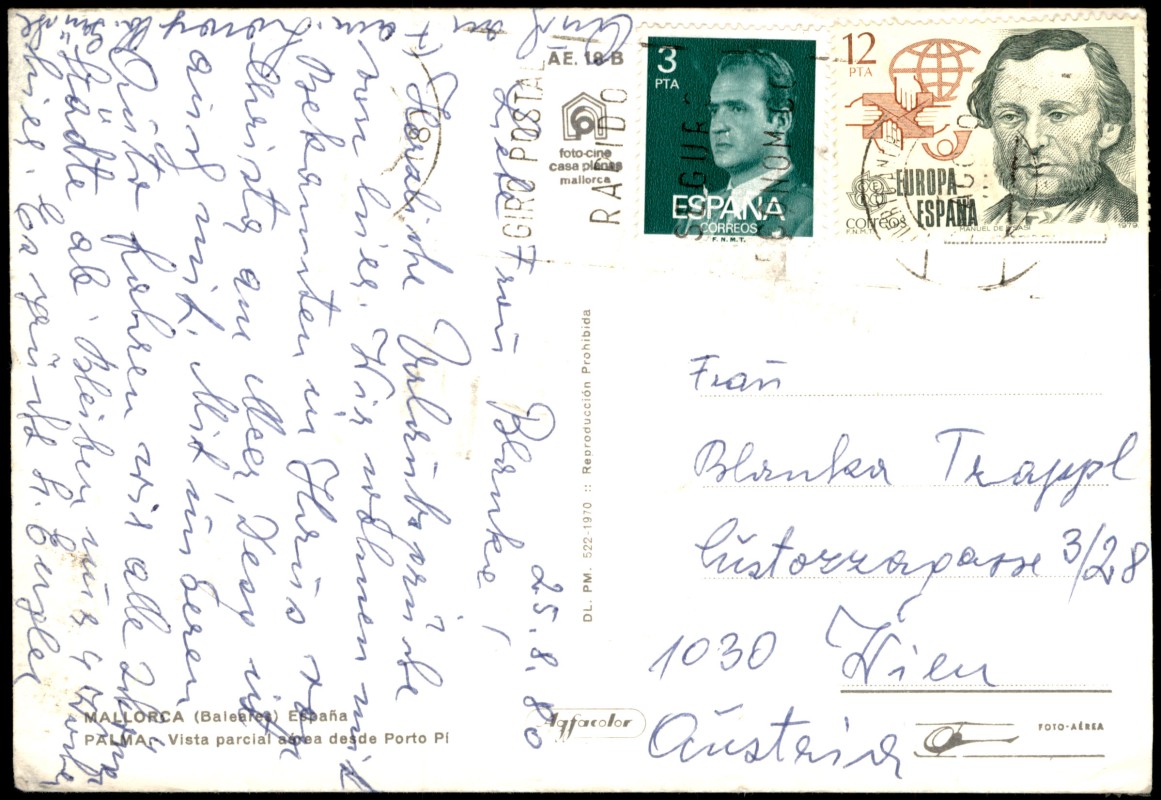 25.8.80
Liebe Frau Blanka!
Herzliche Urlaubsgrüße
von hier. Wir wohnen mit
Bekannten im Haus v.
Christa am Meer, Desy ist
auch mit. Mit unserem
Auto fahren wir alle
Städte ab. Bleiben nur 4
hier. Es grüßt
AE. 18-B
foto-cine
casa planas
mallorca
GIRO POSTAL
RAPIDO
SEGURO
ECONOMICO
3
PTA
ESPAÑA
CORREOS
F.N.M.T.
12
PTA
EUROPA
ESPAÑA
CORREOS
F.N.M.T.
MANUEL DE YSASI
1979
DL. PM. 522-1970 :: Reproducción Prohibida
Frau
Blanka Trappl
Custozzagasse 3/28
1030 Wien
Austria
MALLORCA (Baleares) España
PALMA. Vista parcial aérea desde Porto Pí
Agfacolor
FOTO-AÉREA